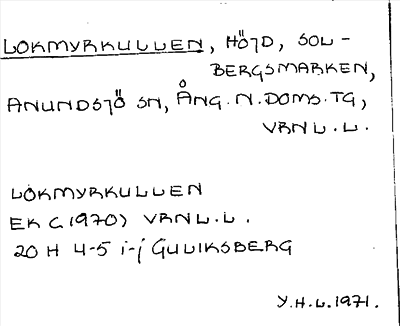 LOKMYRKULLEN, HÖJD, SOL-
BERGSMARKEN,
ANUNDSJÖ SN, ÅNG.N.DOMS.TG,
VRNL.L.
LOKMYRKULLEN
EK (1970) VRNL.L.
20 H 4-5 i-j GULIKSBERG
Y.H.L.1971.